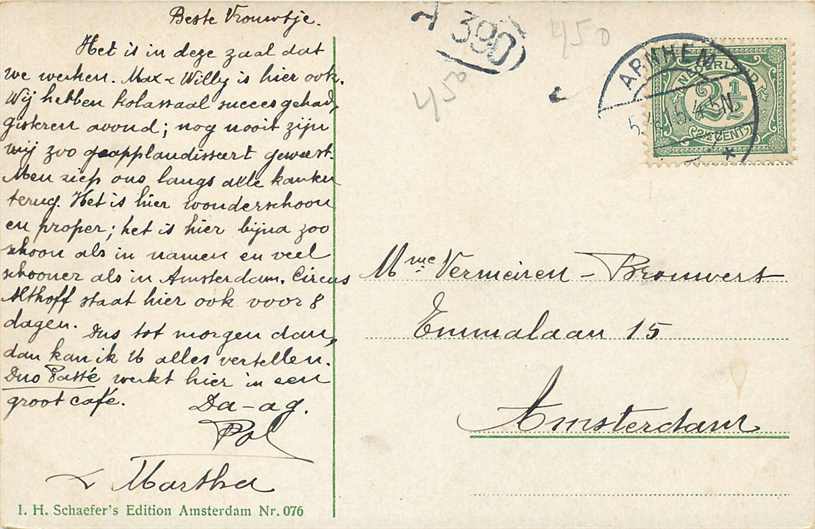 Beste Vrouwtje.
Het is in deze zaal dat
we werken. Max & Willy is hier ook.
Wij hebben kolassaal succes gehad,
gisteren avond; nog nooit zijn
wij zoo geapplaudisseert geweest.
Men riep ons langs alle kanten
terug. Het is hier wonderschoon
en proper; het is hier bijna zoo
schoon als in namen en veel
schooner als in Amsterdam. Circus
Althoff staat hier ook voor 8
dagen.
Dus tot morgen dan,
dan kan ik U alles vertellen.
Duo Fatté werkt hier in een
groot café.
Da-ag.
Pol
& Martha
I. H. Schaefer's Edition Amsterdam Nr. 076
A 390
450
450
ARNHEM
NEDERLAND
2½
CENT
Mme Vermeiren-Brouwers
Emmalaan 15
Amsterdam